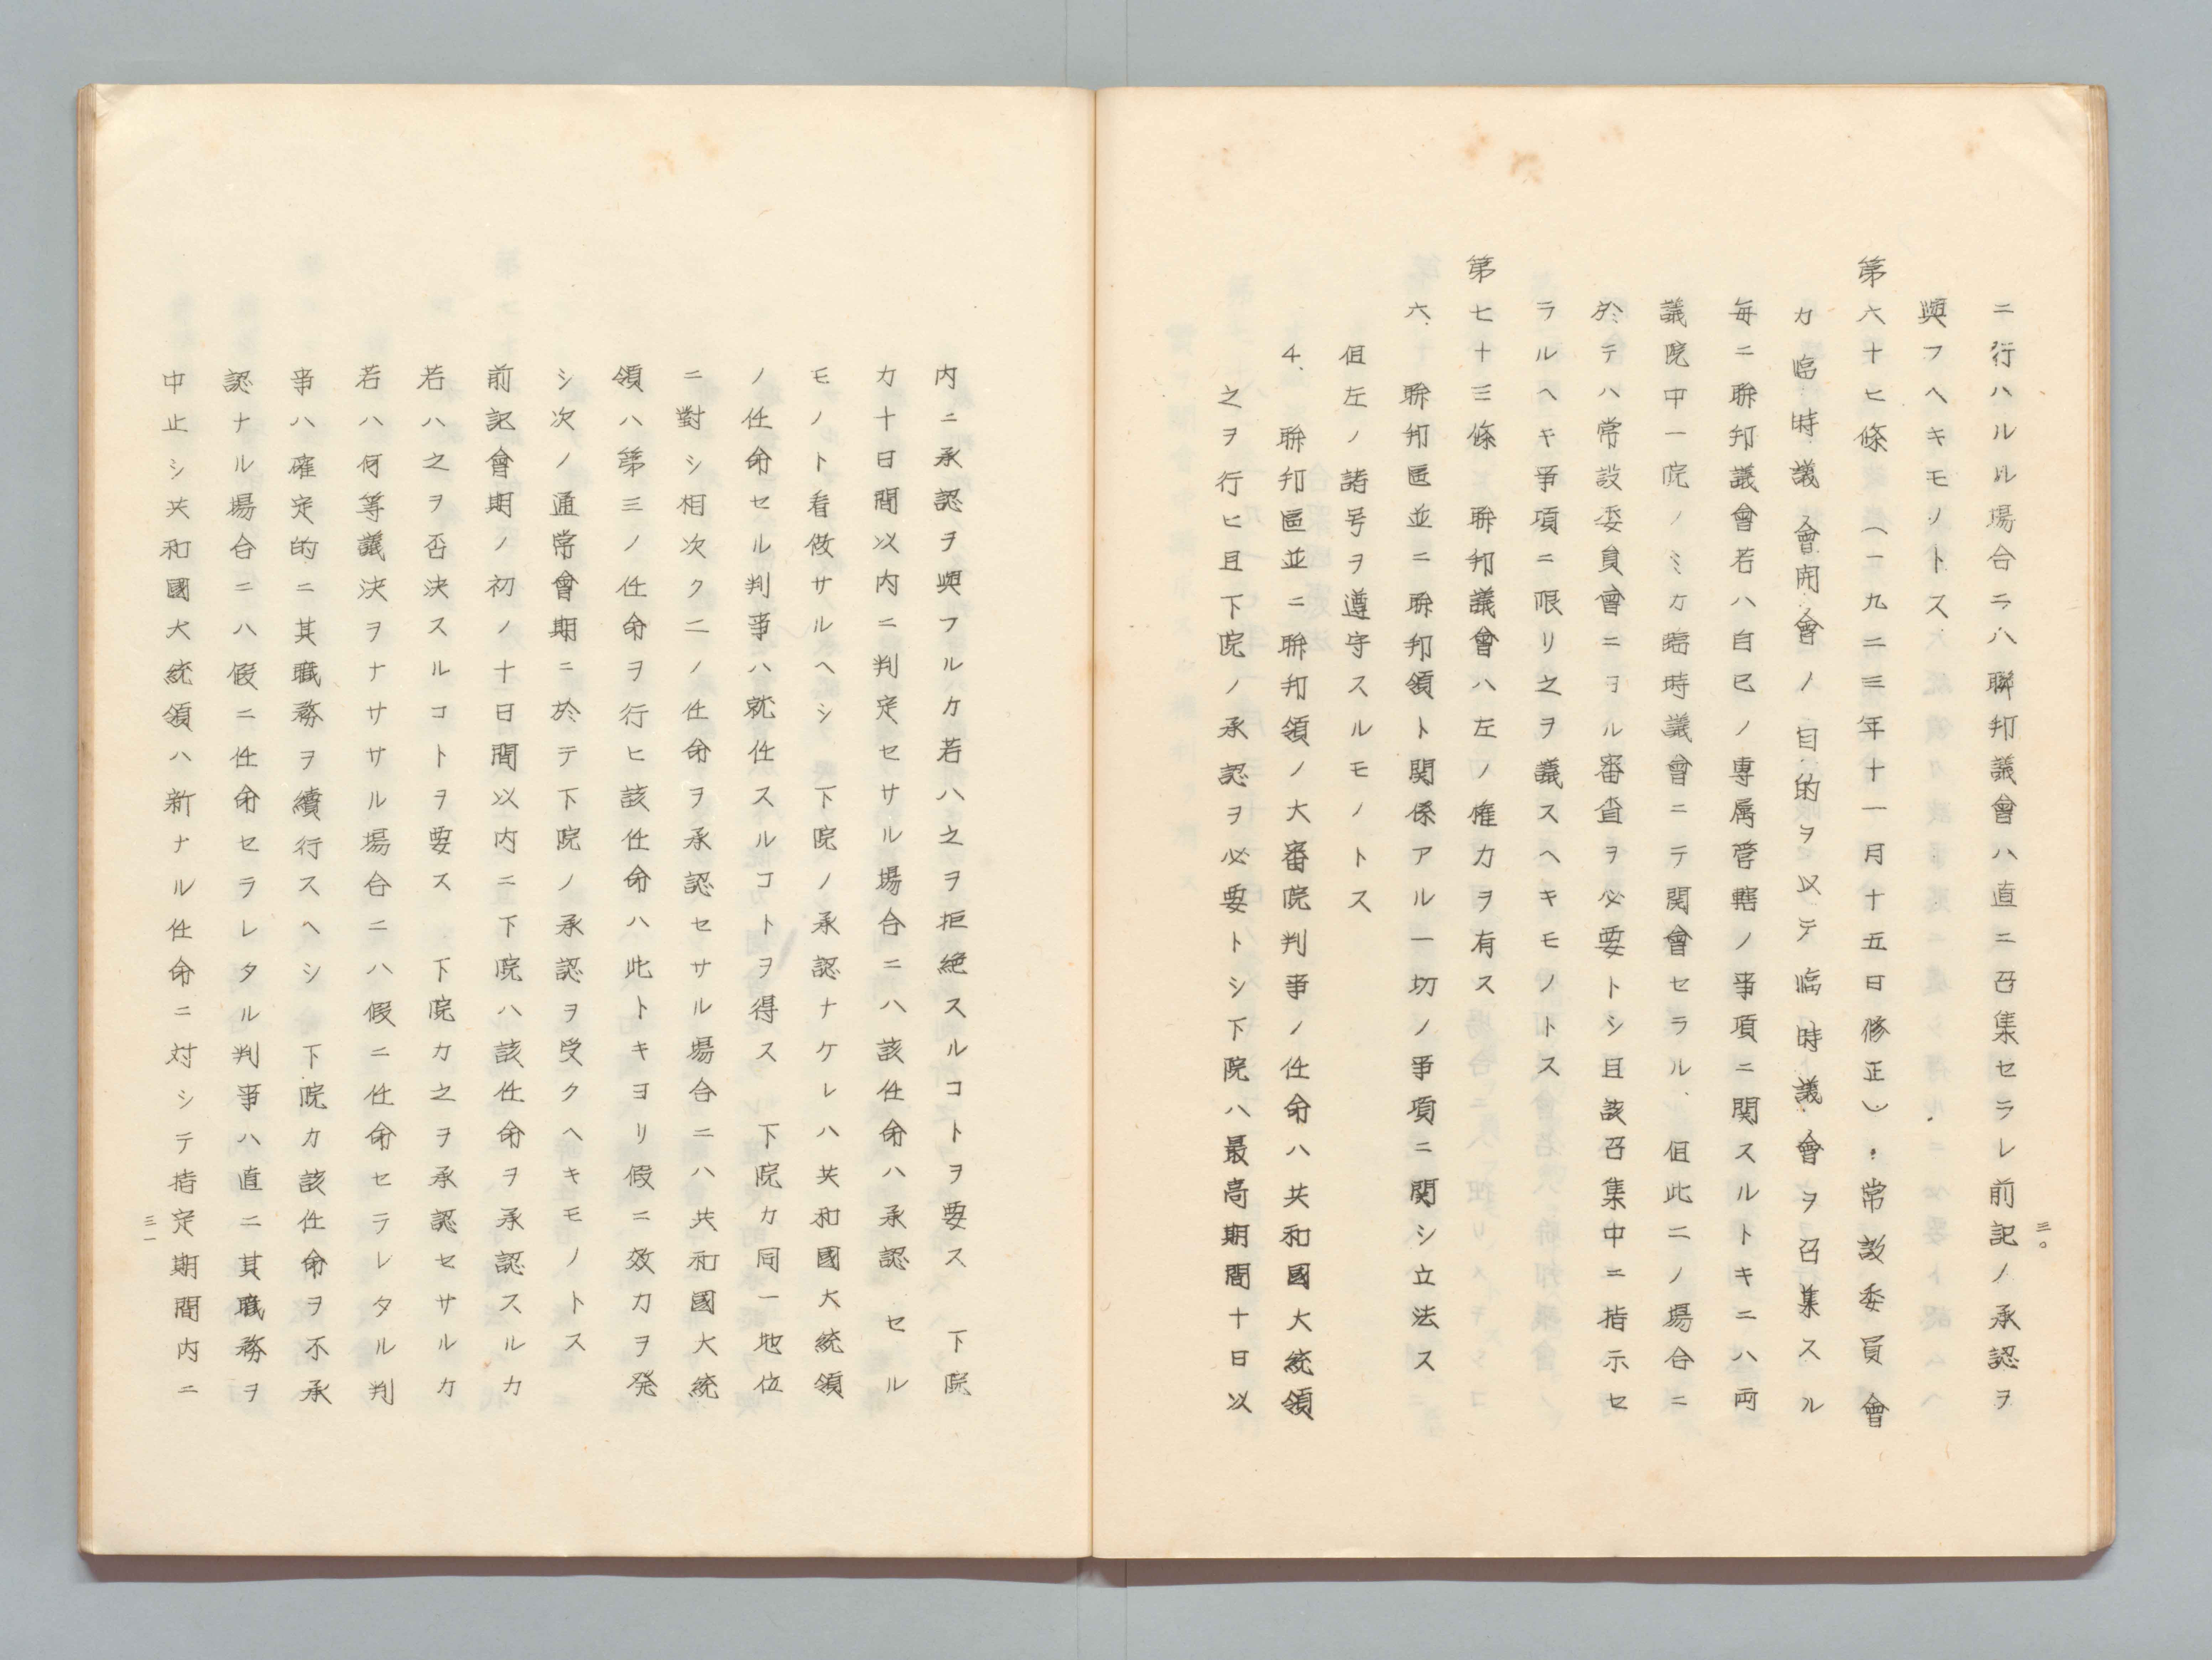 三〇
ニ行ハルル場合ニハ聯邦議會ハ直ニ召集セラレ前記ノ承認ヲ
與フヘキモノトス
第六十七條 (一九二三年十一月十五日修正)・常設委員會
カ臨時議會開會ノ目的ヲ以テ臨時議會ヲ召集スル
毎ニ聯邦議會若ハ自己ノ専属管轄ノ事項ニ関スルトキニハ両
議院中一院ノミカ臨時議會ニテ開會セラル、但此二ノ場合ニ
於テハ常設委員會ニヨル審査ヲ必要トシ且該召集中ニ指示セ
ラルヘキ事項ニ限リ之ヲ議スヘキモノトス
第七十三條 聯邦議會ハ左ノ権力ヲ有ス
六、聯邦區並ニ聯邦領ト関係アル一切ノ事項ニ関シ立法ス
但左ノ諸号ヲ遵守スルモノトス
4、聯邦區並ニ聯邦領ノ大審院判事ノ任命ハ共和國大統領
之ヲ行ヒ且下院ノ承認ヲ必要トシ下院ハ最高期間十日以
内ニ承認ヲ與フルカ若ハ之ヲ拒絶スルコトヲ要ス 下院
カ十日間以内ニ判定セサル場合ニハ該任命ハ承認セル
モノト看做サルヘシ 下院ノ承認ナケレハ共和國大統領
ノ任命セル判事ハ就任スルコトヲ得ス 下院カ同一地位
ニ對シ相次ク二ノ任命ヲ承認セサル場合ニハ共和國大統
領ハ第三ノ任命ヲ行ヒ該任命ハ此トキヨリ假ニ效力ヲ発
シ次ノ通常會期ニ於テ下院ノ承認ヲ受クヘキモノトス
前記會期ノ初ノ十日間以内ニ下院ハ該任命ヲ承認スルカ
若ハ之ヲ否決スルコトヲ要ス 下院カ之ヲ承認セサルカ
若ハ何等議決ヲナササル場合ニハ假ニ任命セラレタル判
事ハ確定的ニ其職務ヲ續行スヘシ 下院カ該任命ヲ不承
認ナル場合ニハ假ニ任命セラレタル判事ハ直ニ其職務ヲ
中止シ共和國大統領ハ新ナル任命ニ対シテ指定期間内ニ
三一